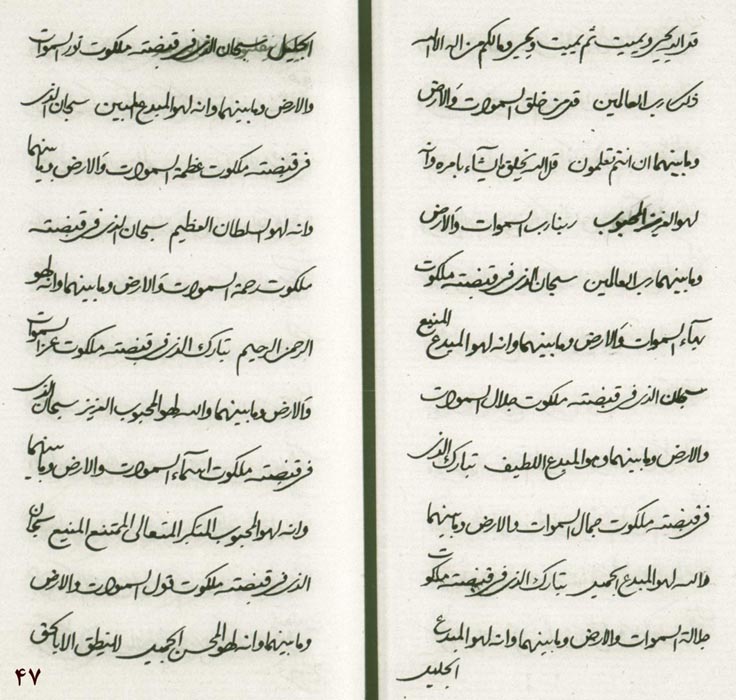 قد انه يحيي ويميت ثم يميت ويحيي وما لكم من اله الا الله
ذلك رب العالمين قل من خلق السموات والارض
وما بينهما ان انتم تعلمون قل الله يخلق ما يشآء بامره وانه
لهو العزيز المحبوب ربنا رب السموات والارض
وما بينهما رب العالمين سبحان الذي في قبضته ملكوت
بهآء السموات والارض وما بينهما وانه لهو المبدع المنيع
سبحان الذي في قبضته ملكوت جلال السموات
والارض وما بينهما وهو المبدع اللطيف تبارك الذي
في قبضته ملكوت جمال السموات والارض وما بينهما
وانه لهو المبدع الجميل تبارك الذي في قبضته ملكوت
جلالة السموات والارض وما بينهما وانه لهو المبدع
الجليل
الجليل سبحان الذي في قبضته ملكوت نور السموات
والارض وما بينهما وانه لهو المبدع سبحان الذي
في قبضته ملكوت عظمة السموات والارض وما بينهما
وانه لهو السلطان العظيم سبحان الذي في قبضته
ملكوت رحمة السموات والارض وما بينهما وانه لهو
الرحمن الرحيم تبارك الذي في قبضته ملكوت عز السموات
والارض وما بينهما وانه لهو المحبوب العزيز سبحان الذي
في قبضته ملكوت اسمآء السموات والارض وما بينهما
وانه لهو المحبوب المتكبر المتعالي الممتنع المنيع سبحان
الذي في قبضته ملكوت قول السموات والارض
وما بينهما وانه لهو المحسن الجميل لا ينطق الا بالحق
۴۷